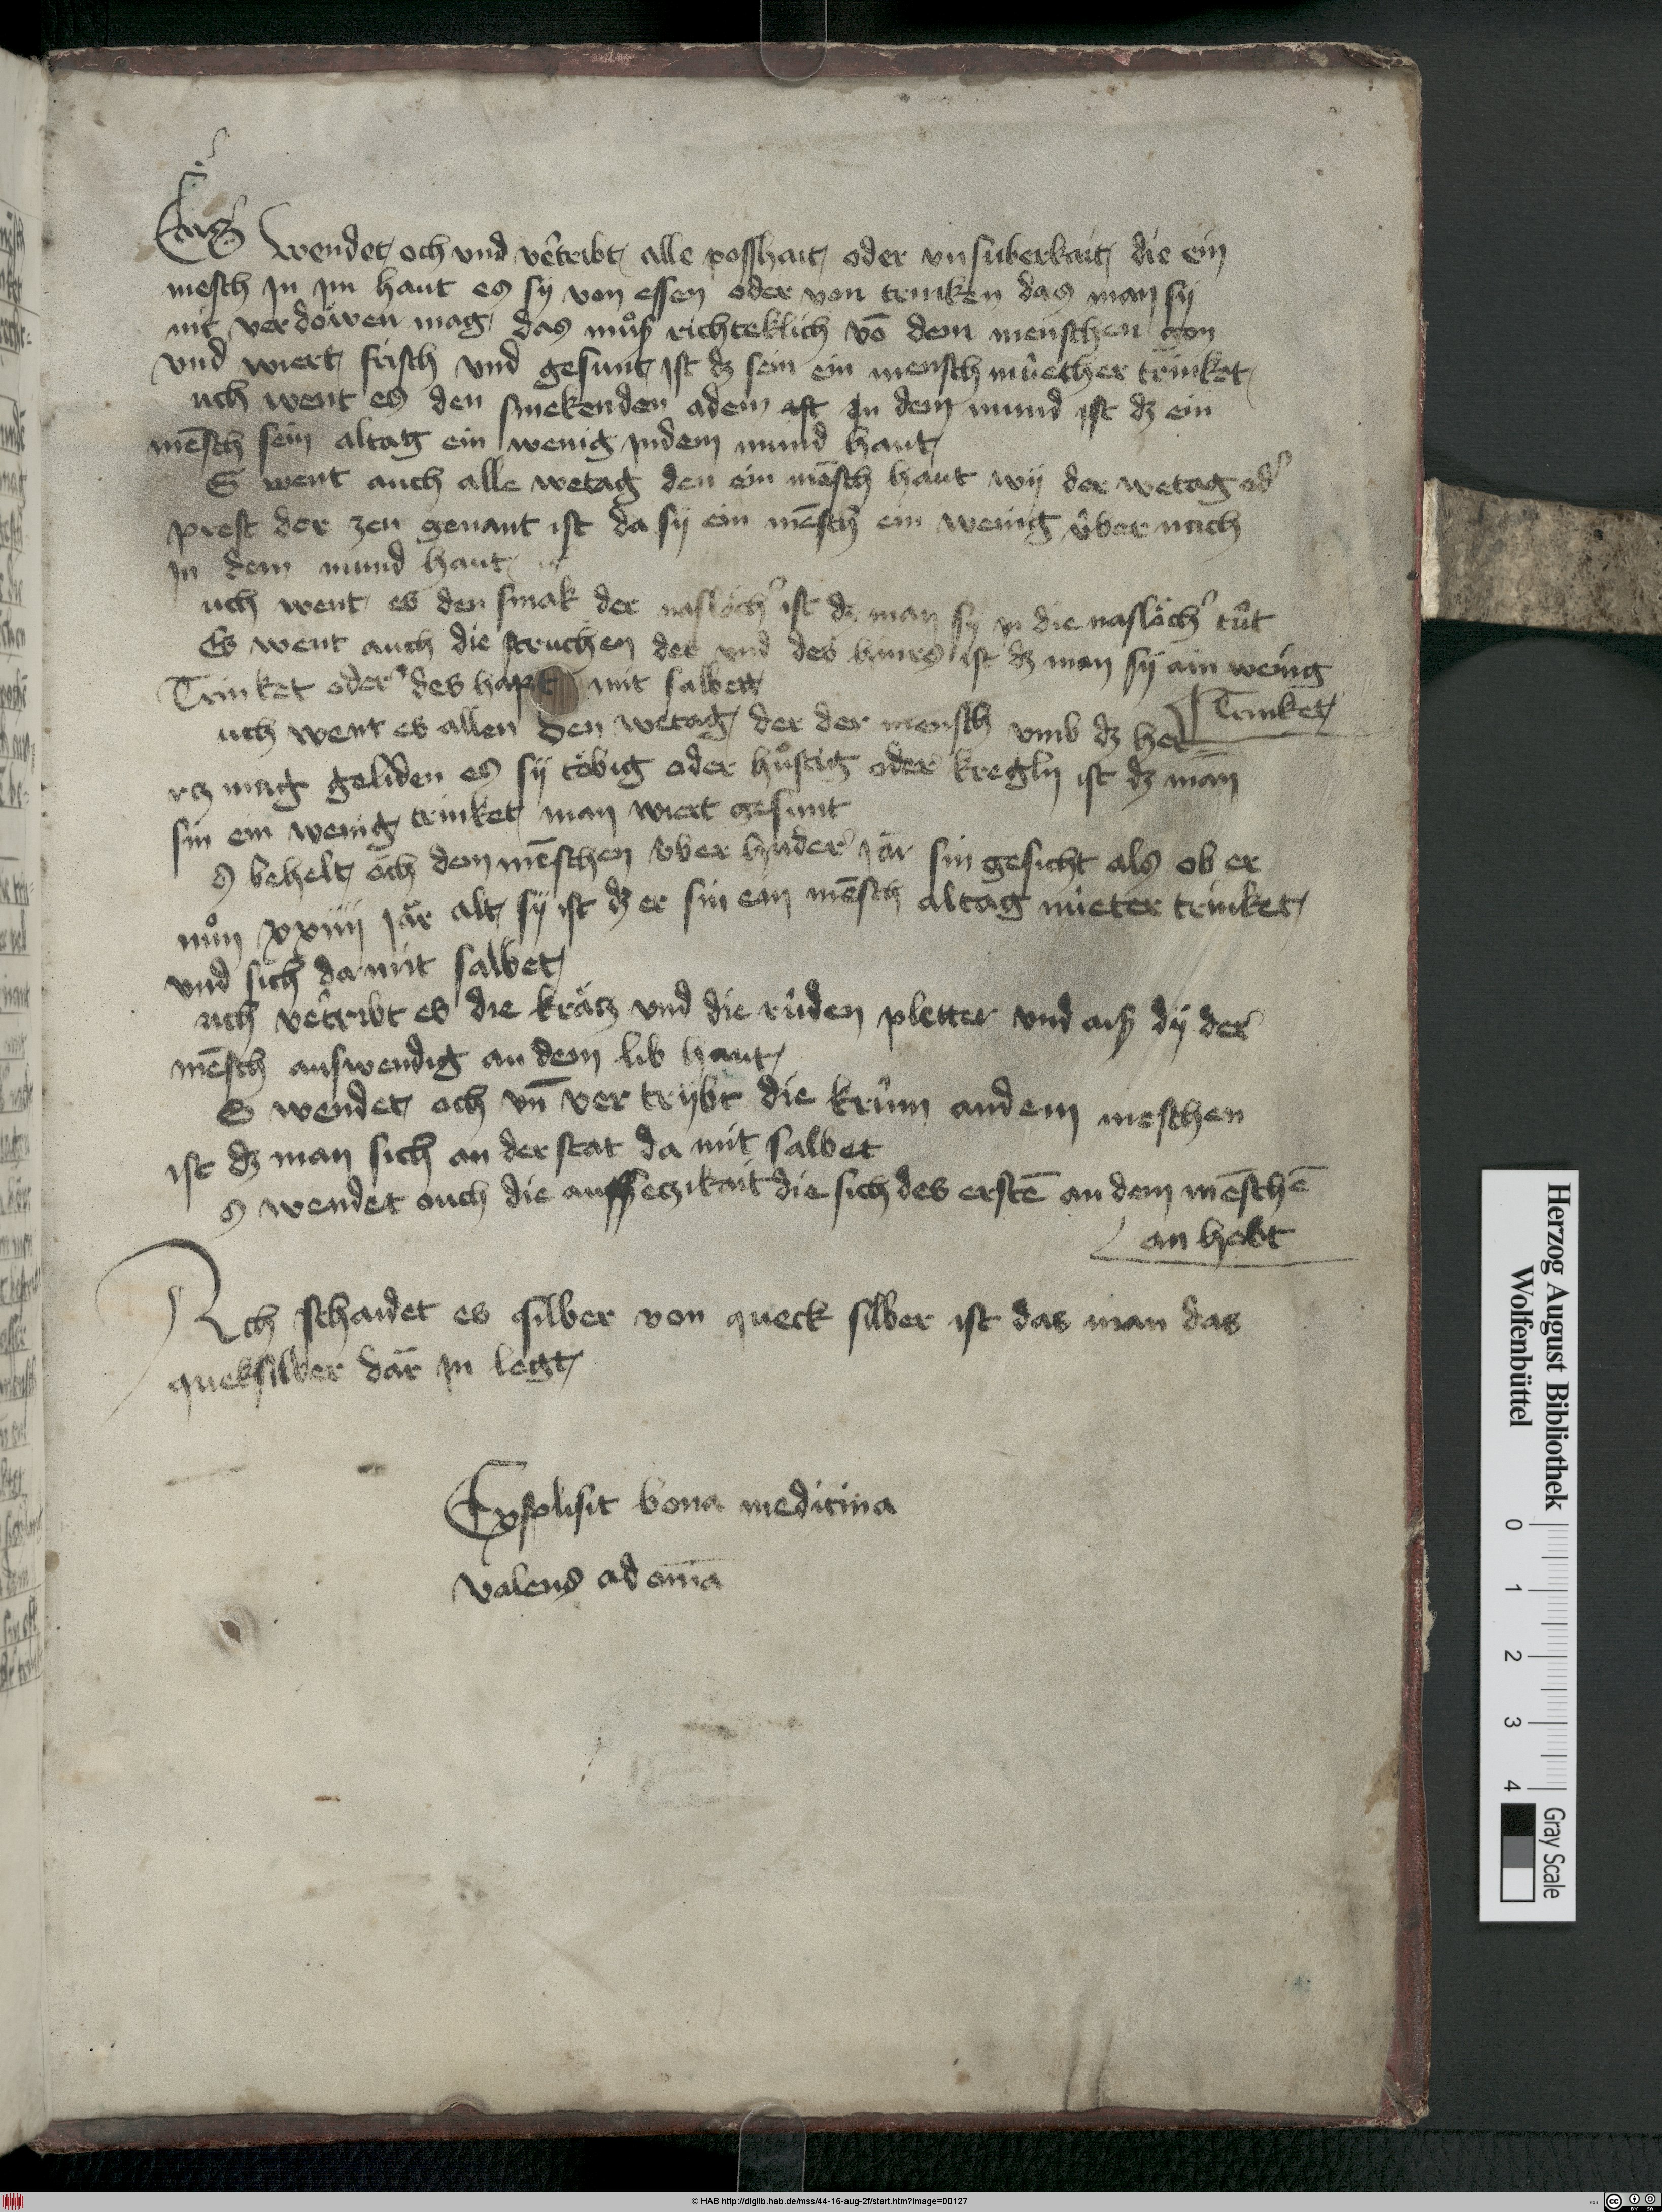 wendet och und vertribt alle posshait oder unsuberkait die ein
mesch jn jm haut es sÿ von essen oder von trinken das man sÿ
nit verdöwen mag das můß richteklich võ dem menschen gon
vnd wiert frisch vnd gesunt jst dz sein ein mensch nüether trinket
uch went es den smekenden adem jn dem mund ist dz ein
mēsch sein altag ein wenig jndem mund haut
S went auch alle wetag den ein mēsch haut wÿ der wetag od'
prest der zen genant ist da sÿ ein mēsch ein wenig über nach
jn dem mund haut
uch went es den smak der naslöch' ist dz man sÿ jn die naslöch' tůt
Es went auch die struchen des und des hirns ist dz man sÿ ain wenig
Trinket oder des hapt mit salbett
Trinket
uch went es allen den wetag der der mensch umb dz her
rcz mag geliden es sÿ töbig oder hůstig oder kregln ist dz man
sin ein wenig trinket man wiert gesunt
s behelt öch dem mēschen über hūder jär sin gesicht als ob er
nůn xxiiij jär alt sÿ ist dz er sin ein mēsch altag nüeter trinket
und sich da mit salbet
uch vertribt es die kräcz und die rüden pletter und aiß dÿ der
mēsch auswendig an dem lib haut
S wendet och vn̄ ver trÿbt die krüm andem meschen
ist dz man sich an der stat da mit salbet
s wendet auch die ausseczikait die sich des erstē an dem mēschē
an hebt
Ach schaidet es silber von queck silber ist das man das
queksilber där jn legt
Exsplisit bona medicina
valens ad om̄a
Herzog August Bibliothek
Wolfenbüttel
0 1 2 3 4
Gray Scale
© HAB http://diglib.hab.de/mss/44-16-aug-2f/start.htm?image=00127